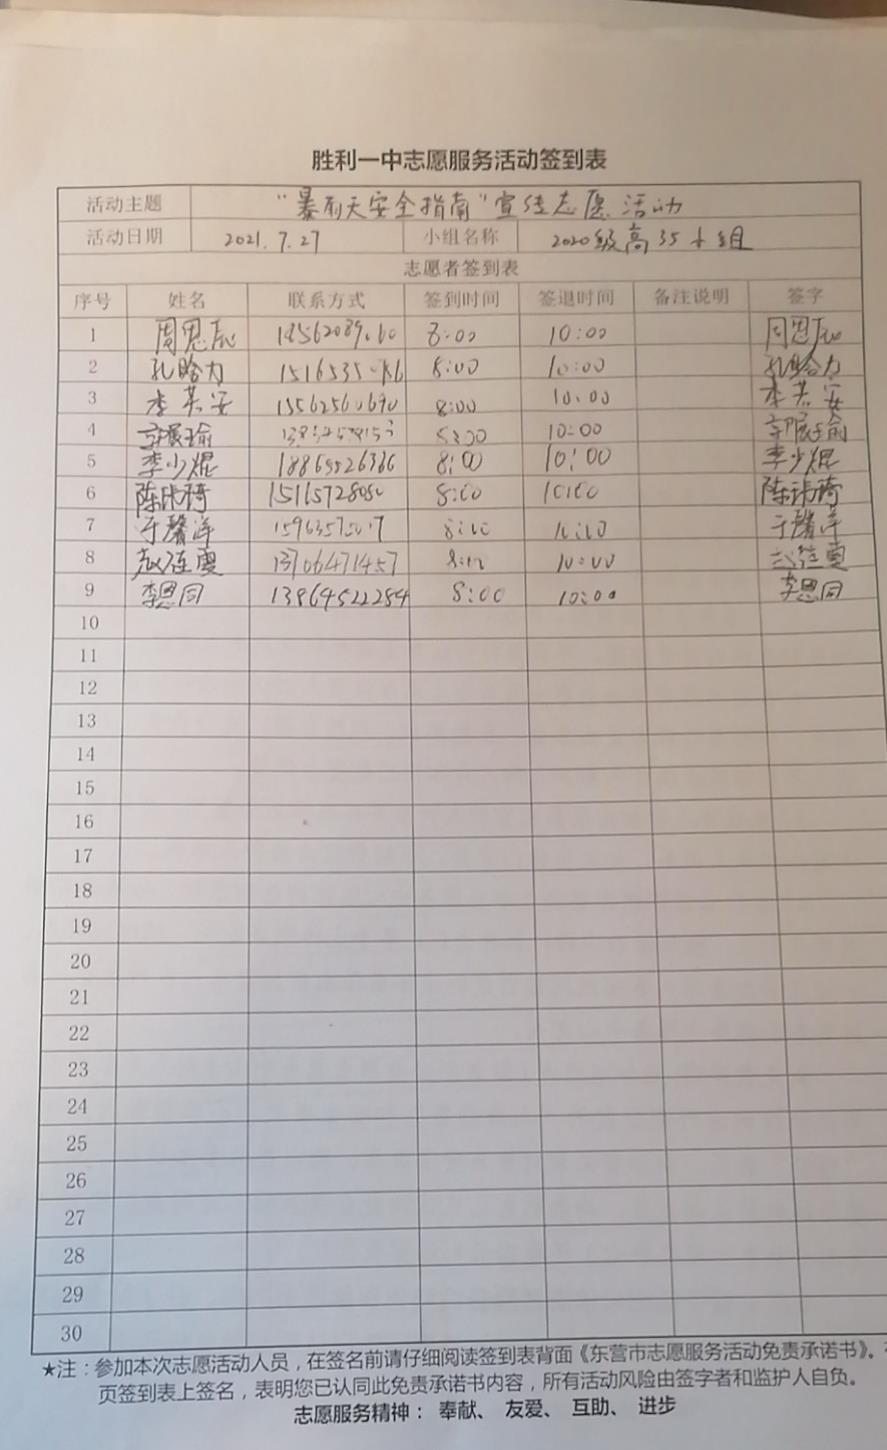 胜利一中志愿服务活动签到表
活动主题 "暴雨天安全指南"宣传志愿活动
活动日期 2021.7.27 小组名称 2020级高35小组
志愿者签到表
序号 姓名 联系方式 签到时间 签退时间 备注说明 签字
1 周思辰 8:00 10:00 周思辰
2 孔晗力 8:00 10:00 孔晗力
3 李若安 8:00 10:00 李若安
4 8:00 10:00
5 李少焜 18865526366 8:00 10:00 李少焜
6 8:00 10:00
7 于馨洋 8:00 10:00 于馨洋
8 13706471457 8:00 10:00
9 李思同 13864522284 8:00 10:00 李思同
10
11
12
13
14
15
16
17
18
19
20
21
22
23
24
25
26
27
28
29
30
★注：参加本次志愿活动人员，在签名前请仔细阅读签到表背面《东营市志愿服务活动免责承诺书》。
页签到表上签名，表明您已认同此免责承诺书内容，所有活动风险由签字者和监护人自负。
志愿服务精神： 奉献、 友爱、 互助、 进步